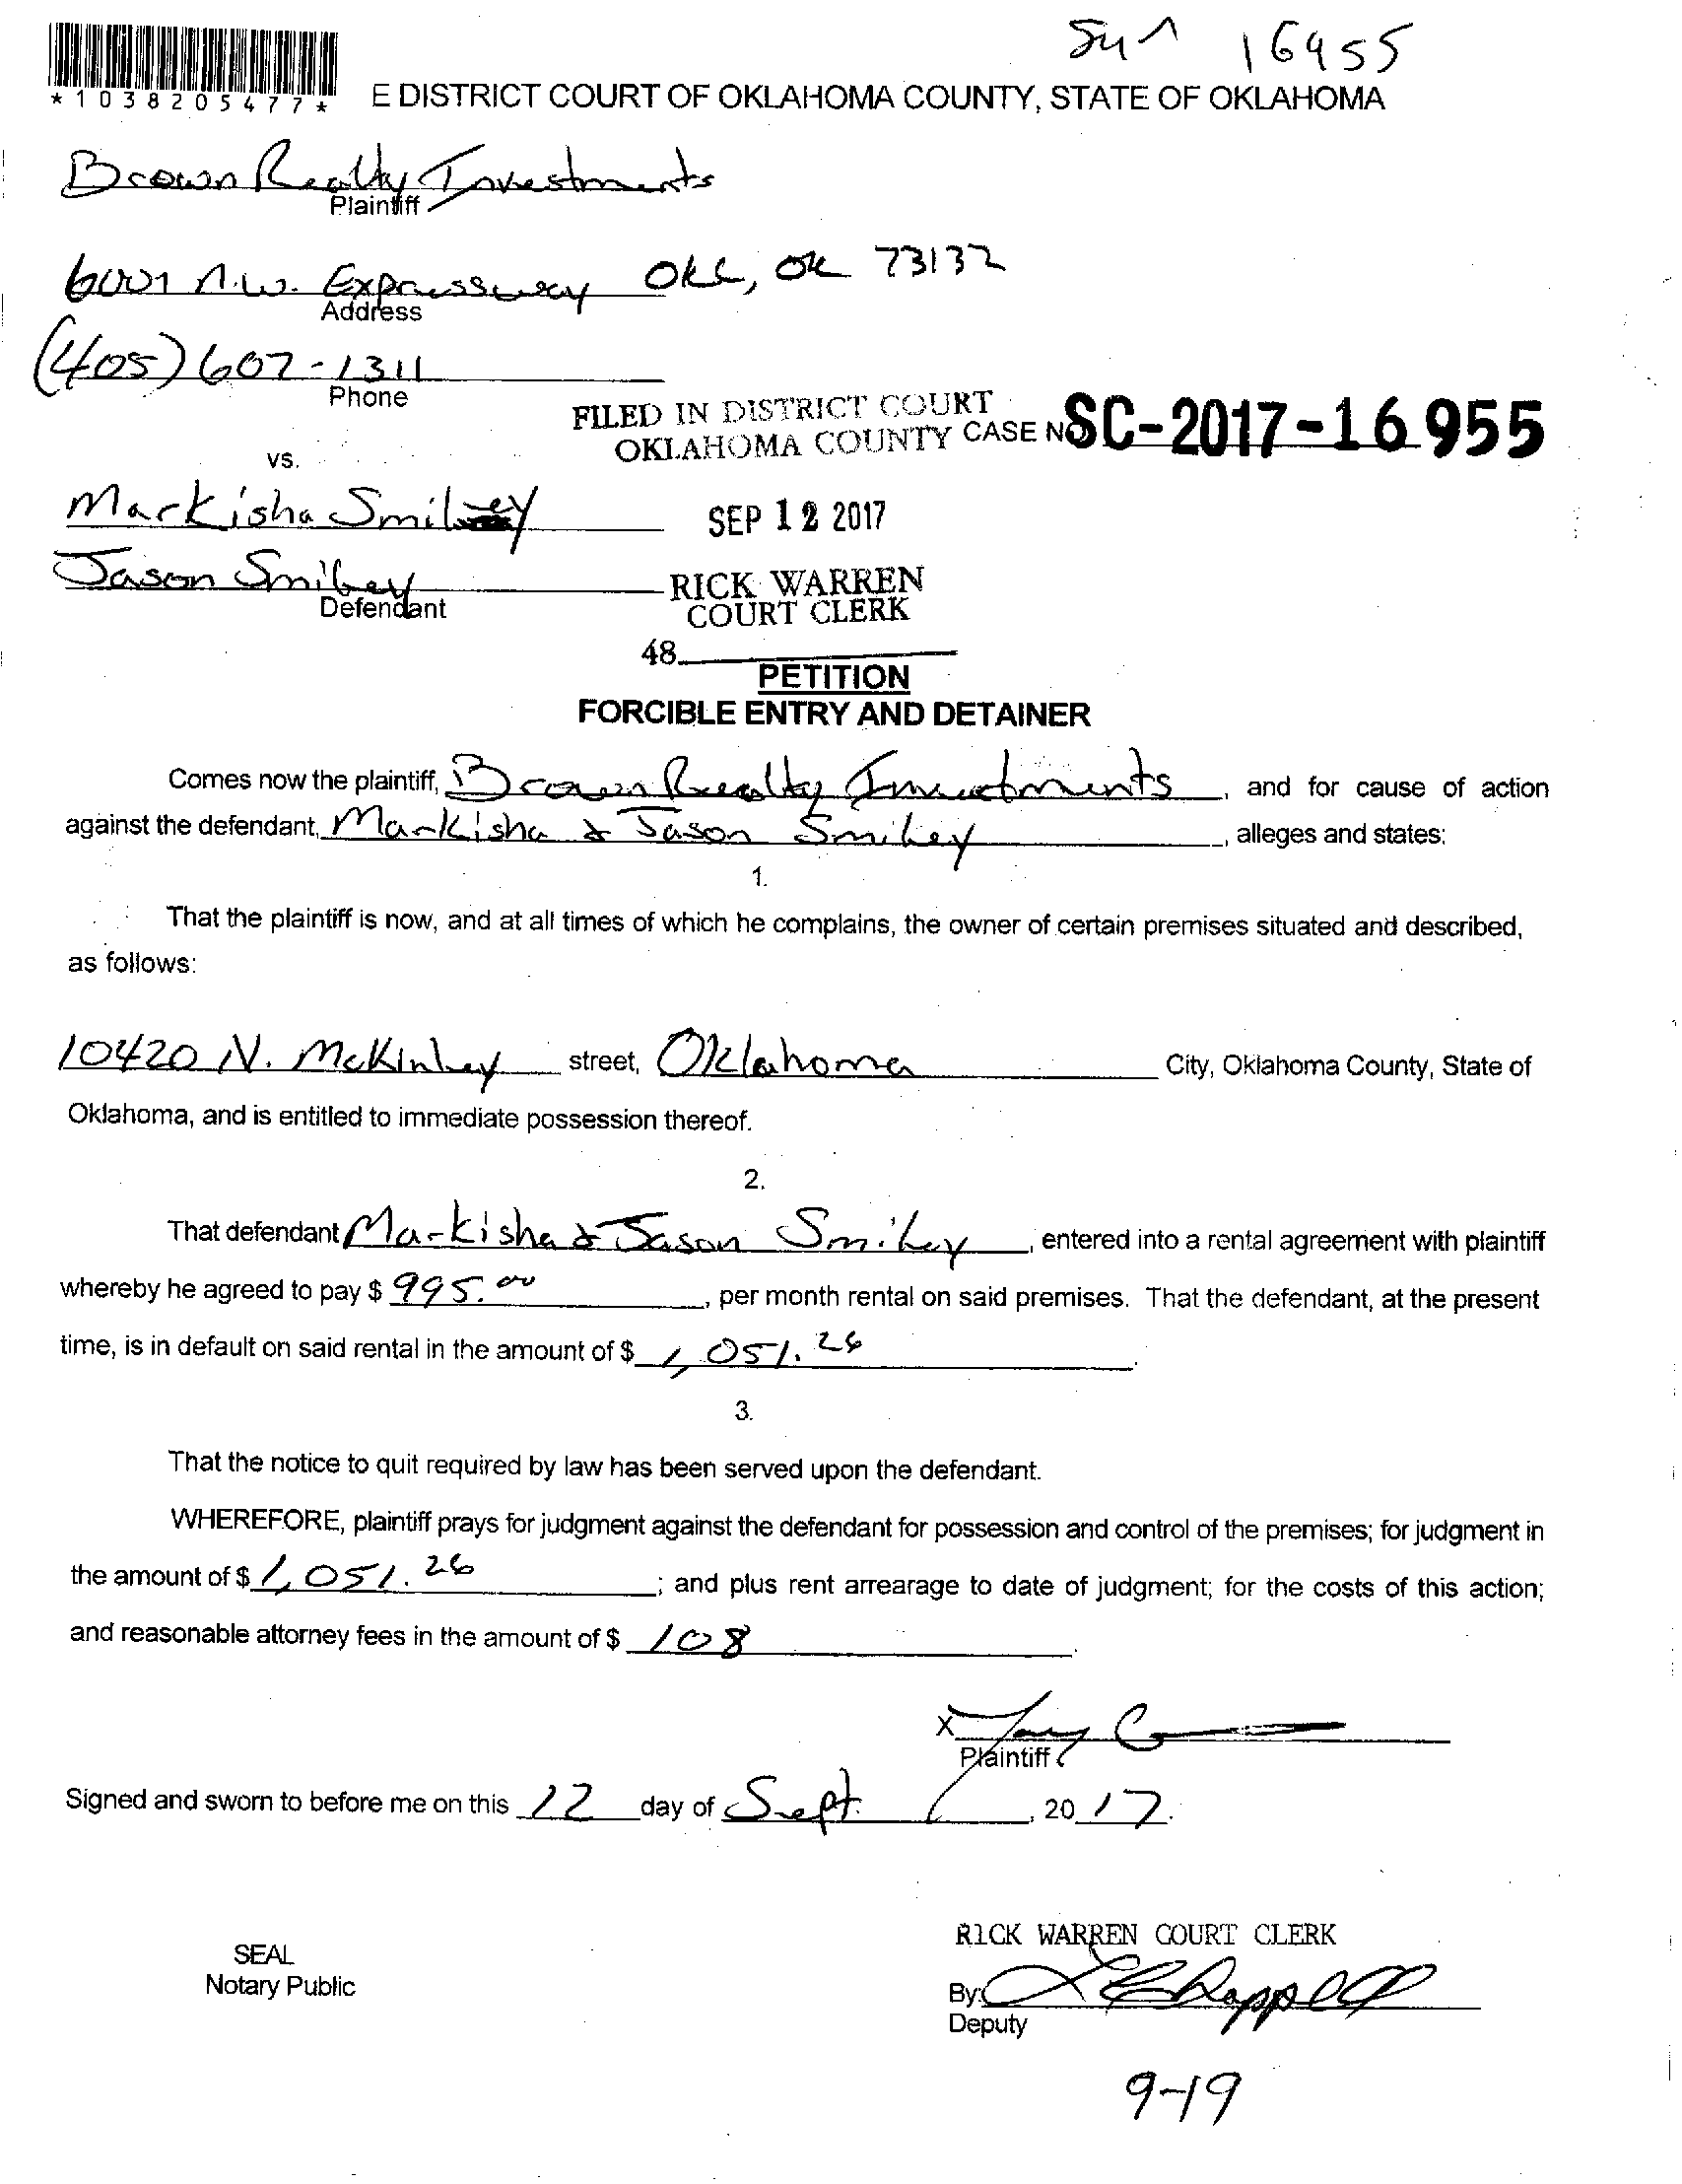 16955
*1038205477*
E DISTRICT COURT OF OKLAHOMA COUNTY, STATE OF OKLAHOMA
Brown Realty Investments
Plaintiff
6001 N.W. Expressway OKC, OK 73132
Address
(405) 607-1311
Phone
FILED IN DISTRICT COURT
OKLAHOMA COUNTY CASE NO SC-2017-16955
vs.
Markisha Smiley
SEP 12 2017
Jason Smiley
Defendant
RICK WARREN
COURT CLERK
48
PETITION
FORCIBLE ENTRY AND DETAINER
Comes now the plaintiff, Brown Realty Investments, and for cause of action
against the defendant, Markisha & Jason Smiley, alleges and states:
1.
That the plaintiff is now, and at all times of which he complains, the owner of certain premises situated and described,
as follows:
10420 N. McKinley street, Oklahoma City, Oklahoma County, State of
Oklahoma, and is entitled to immediate possession thereof.
2.
That defendant Markisha & Jason Smiley, entered into a rental agreement with plaintiff
whereby he agreed to pay $ 995.00, per month rental on said premises. That the defendant, at the present
time, is in default on said rental in the amount of $ 1,051.26.
3.
That the notice to quit required by law has been served upon the defendant.
WHEREFORE, plaintiff prays for judgment against the defendant for possession and control of the premises; for judgment in
the amount of $ 1,051.26; and plus rent arrearage to date of judgment; for the costs of this action;
and reasonable attorney fees in the amount of $ 108.
X
Plaintiff
Signed and sworn to before me on this 12 day of Sept, 2017.
RICK WARREN COURT CLERK
SEAL
Notary Public
By: L Chappell
Deputy
9-19